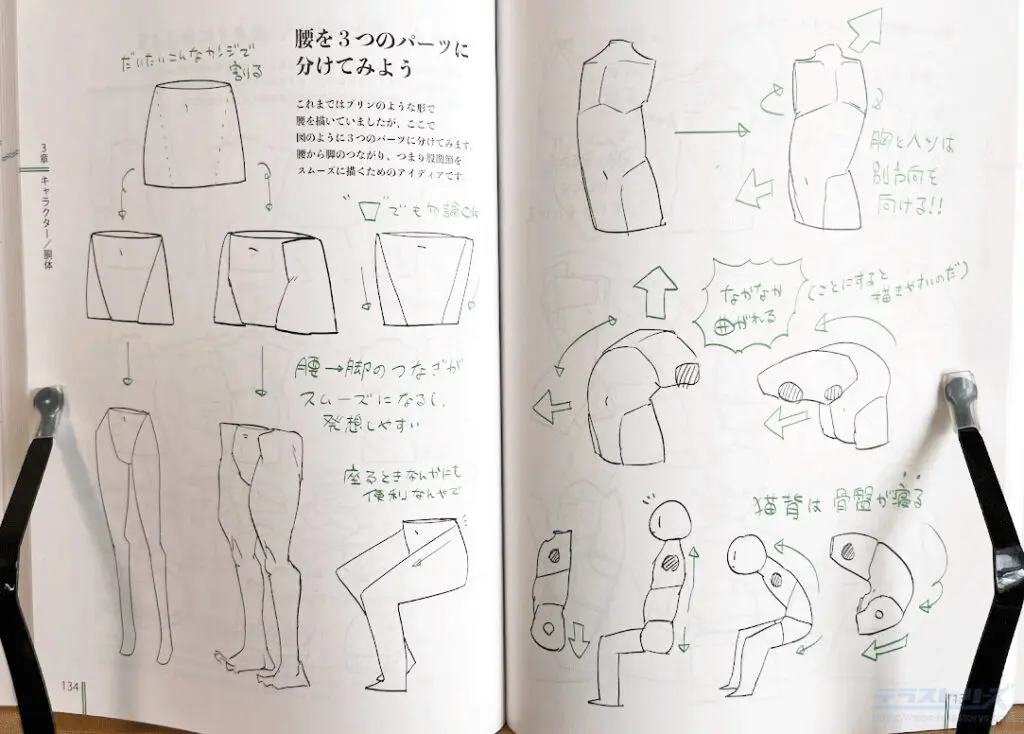 だいたいこんなカンジで
割る
腰を3つのパーツに
分けてみよう
これまではプリンのような形で
腰を描いていましたが、ここで
図のように3つのパーツに分けてみます。
腰から脚のつながり、つまり股関節を
スムーズに描くためのアイディアです。
3章 キャラクター/胴体
でも勿論OK
腰→脚のつなぎが
スムーズになるし、
発想しやすい
座るときなんかにも
便利なんやで
134
胸とハラは
別方向を
向ける!!
なかなか
曲がれる
(ごとにすると
描きやすいのだ)
猫背は骨盤が寝る
テラストーリーズ